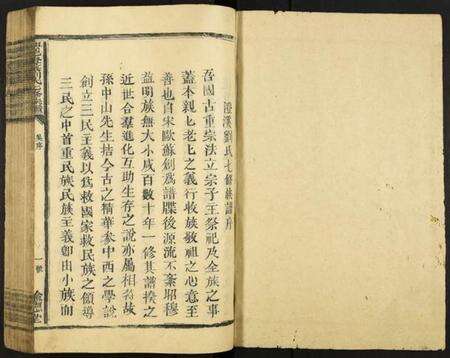 澄溪劉氏七修族譜序
吾國古重宗法立宗子主祭祀及全族之事
蓋本親七老七之義行收族敬祖之心意至
善也自宋歐蘇創為譜牒後源流不紊昭穆
益明族無大小咸百數十年一修其譜揆之
近世合羣進化互助生存之說亦屬相符故
孫中山先生括今古之精華參中西之學說
創立三民主義以為救國家救民族之領導
三民之中首重民族民族主義卽由小族而